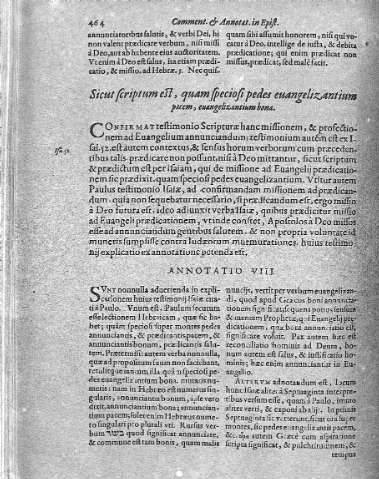 464 Comment. & Annotat. in Epist.
annunciatoribus salutis, & verbi Dei, hi
non valent prædicare verbum, nisi missi
à Deo, aut ab habente eius auctoritatem.
Vt enim à Deo est salus, ita etiam prædi-
catio, & missio. ad Hebræ. 5. Nec quis-
quam sibi assumit honorem, nisi qui vo-
catur à Deo, intellige de iusta, & debita
prædicatione; qui enim prædicat non
missus, prædicat, sed malè facit.
Sicut scriptum est, quam speciosi pedes euangelizantium
pacem, euangelizantium bona.
CONFIRMAT testimonio Scripturæ hanc missionem, & profectio-
nem ad Euangelium annunciandum; testimonium autem est ex I-
sai. 52. est autem contextus, & sensus horum verborum cum præceden-
tibus talis. prædicare non possunt nisi à Deo mittantur, sicut scriptum
& prædictum est per Isaiam, qui de missione ad Euangelij prædicatio-
nem sic prædixit. quam speciosi pedes euangelizantium. Vtitur autem
Paulus testimonio Isaiæ, ad confirmandam missionem ad prædican-
dum, quia non sequebatur necessario, si prædicandum est, ergo missio
à Deo futura est. ideo adiunxit verba Isaiæ, quibus prædicitur missio
ad Euangelij prædicationem, vt inde constet, Apostolos à Deo missos
esse ad annunciandum gentibus salutem, & non propria voluntate id
muneris sumpsisse contra Iudæorum murmurationes. huius testimo-
nij explicatio ex annotatione potenda est.
Isa. 52.
ANNOTATIO VIII
SVNT nonnulla aduertenda in expli-
cationem huius testimonij Isaiæ cita-
ti à Paulo. Vnum est. Paulum secutum
esse lectionem Hebraicam, quæ sic ha-
bet; quàm speciosi super montes pedes
annunciantis, & prædicantis pacem, &
annunciantis bonum, prædicantis salu-
tem. Prætermisit autem verba nonnulla,
quæ ad propositum suum non faciebant,
retulitque tantùm illa. quàm speciosi pe-
des euangelizantium bona. mutauit nu-
merum; nam in Hebræo est numerus sin-
gularis, annunciantis bonum, ipse vero
dixit, annunciantium bona; annuncian-
tium pacem, fuisset in Hebræo; nume-
ro singulari pro plurali vti. Rursus ver-
bum בשר quod significat annunciare,
& commune est tam bonis, quàm malis
nuncijs, vertit per verbum euangelizan-
di, quod apud Græcos boni annuncia-
tionem significat;
& eamdem Prophetæ,
dicationem,
significare voluit. Pax autem hæc est
reconciliatio hominis ad Deum, bo-
num autem est salus, & iustificatio ho-
minis; hæc enim annunciantur in Eu-
angelio.
ALTERVM adnotandum est. Locum
hunc Isaiæ aliter à Septuaginta interpre-
tibus versum esse, quàm à Paulo, immo
aliter verti, & exponi ab illis. Inprimis
Septuaginta sic vertunt, sicut ora super
montes, sic pedes euangelizantis pacem,
&c. ὥρα autem Græcè cum aspiratione
scripta significat, & pulchritudinem, &
tempus